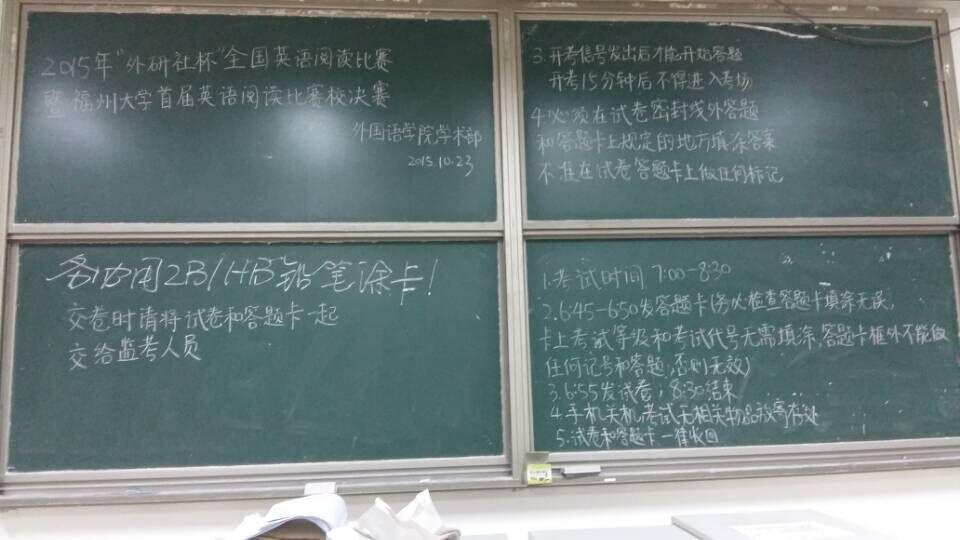 2015年“外研社杯”全国英语阅读比赛
暨福州大学首届英语阅读比赛校决赛
外国语学院学术部
2015.10.23
3.开考信号发出后才能开始答题
开考15分钟后不得进入考场
4.必须在试卷密封线外答题
和答题卡上规定的地方填涂答案
不准在试卷答题卡上做任何标记
务必用2B/HB铅笔涂卡！
交卷时请将试卷和答题卡一起
交给监考人员
1.考试时间 7:00-8:30
2.6:45-6:50发答题卡(务必检查答题卡填涂无误,
卡上考试等级和考试代号无需填涂,答题卡框外不能做
任何记号和答题,否则无效)
3.6:55发试卷；8:30结束
4.手机关机,考试无相关物品放寄存处
5.试卷和答题卡一律收回